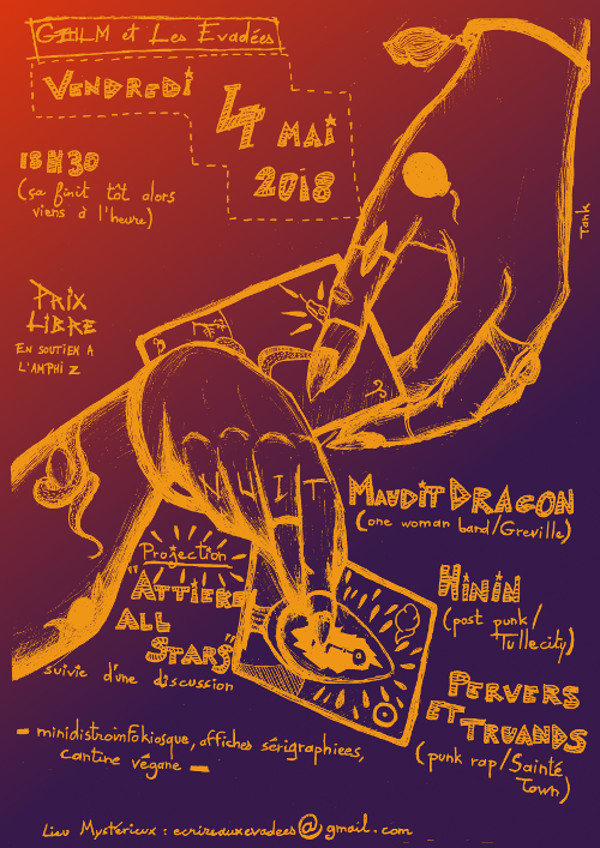 GHLM et Les Evadées
VENDREDI
4 MAI
2018
18H30
(ça finit tôt alors
viens à l'heure)
PRIX
LIBRE
EN SOUTIEN A
L'AMPHI Z
Tank
NUIT
MAUDIT DRAGON
(one woman band/Greville)
Projection
"ATTIEKE
ALL
STARS"
suivie d'une discussion
HININ
(post punk/
Tullecity)
PERVERS
ET TRUANDS
(punk rap/Sainté
Town)
- minidistroinfokiosque, affiches sérigraphiees,
cantine végane -
Lieu Mystérieux : ecrireauxevadees@gmail.com